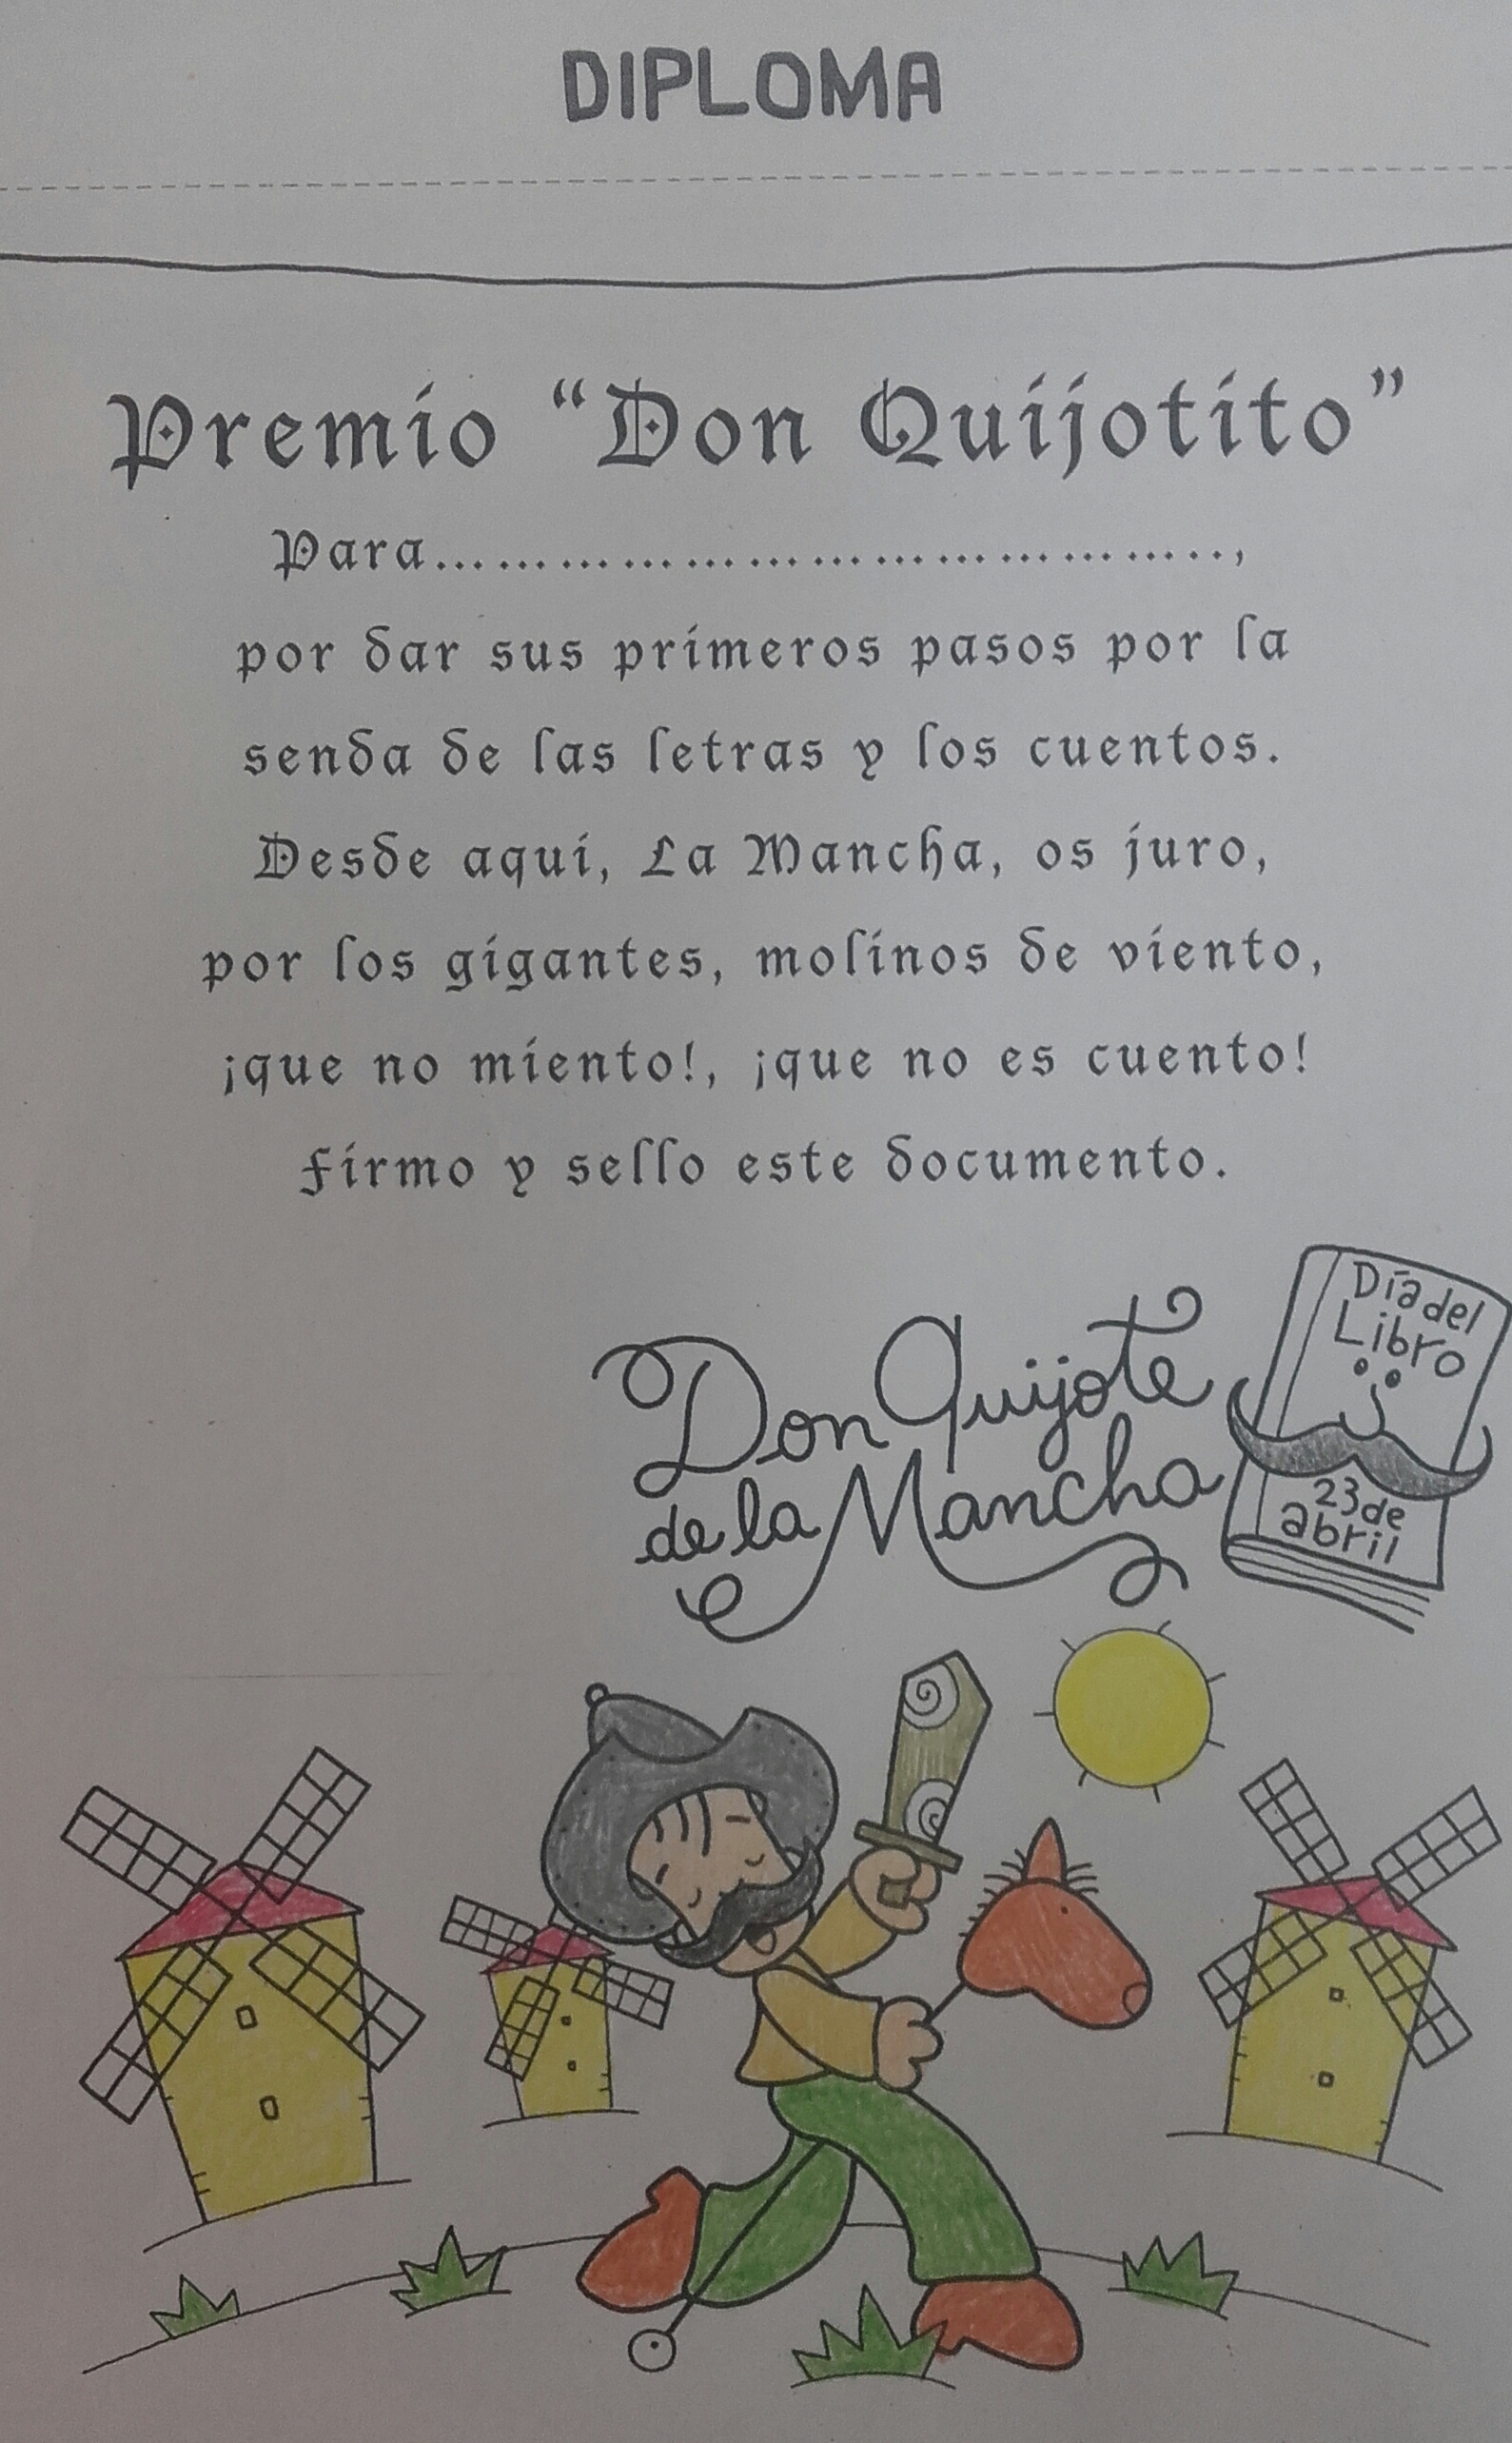 DIPLOMA
Premio “Don Quijotito”
Para......................................................,
por dar sus primeros pasos por la
senda de las letras y los cuentos.
Desde aquí, La Mancha, os juro,
por los gigantes, molinos de viento,
¡que no miento!, ¡que no es cuento!
Firmo y sello este documento.
Don Quijote
de la Mancha
Día del
Libro
23 de
abril